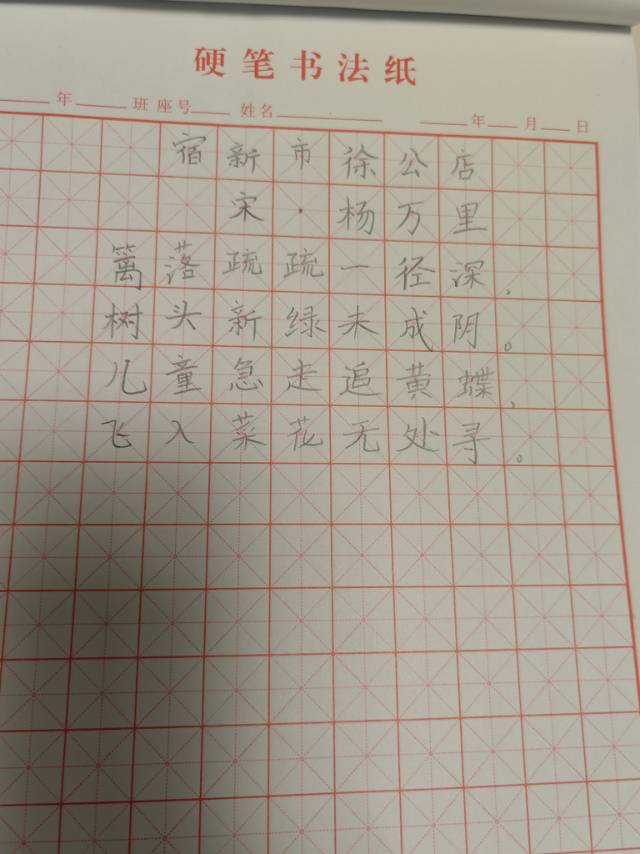 硬笔书法纸
年 班 座号 姓名 年 月 日
宿新市徐公店
宋·杨万里
篱落疏疏一径深，
树头新绿未成阴。
儿童急走追黄蝶，
飞入菜花无处寻。